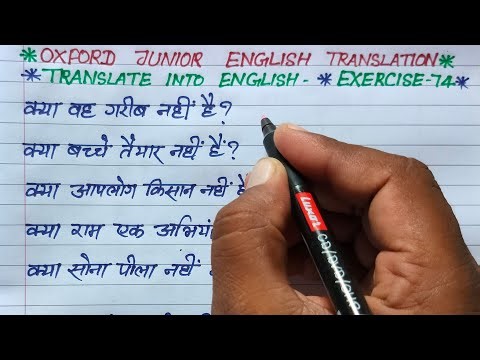 *OXFORD JUNIOR ENGLISH TRANSLATION*
*TRANSLATE INTO ENGLISH- *EXERCISE-74*
क्या वह गरीब नहीं है?
क्या बच्चे तैयार नहीं हैं?
क्या आपलोग किसान नहीं
क्या राम एक
क्या सोना पीला नहीं
Luxor
CD/DVD/OHP